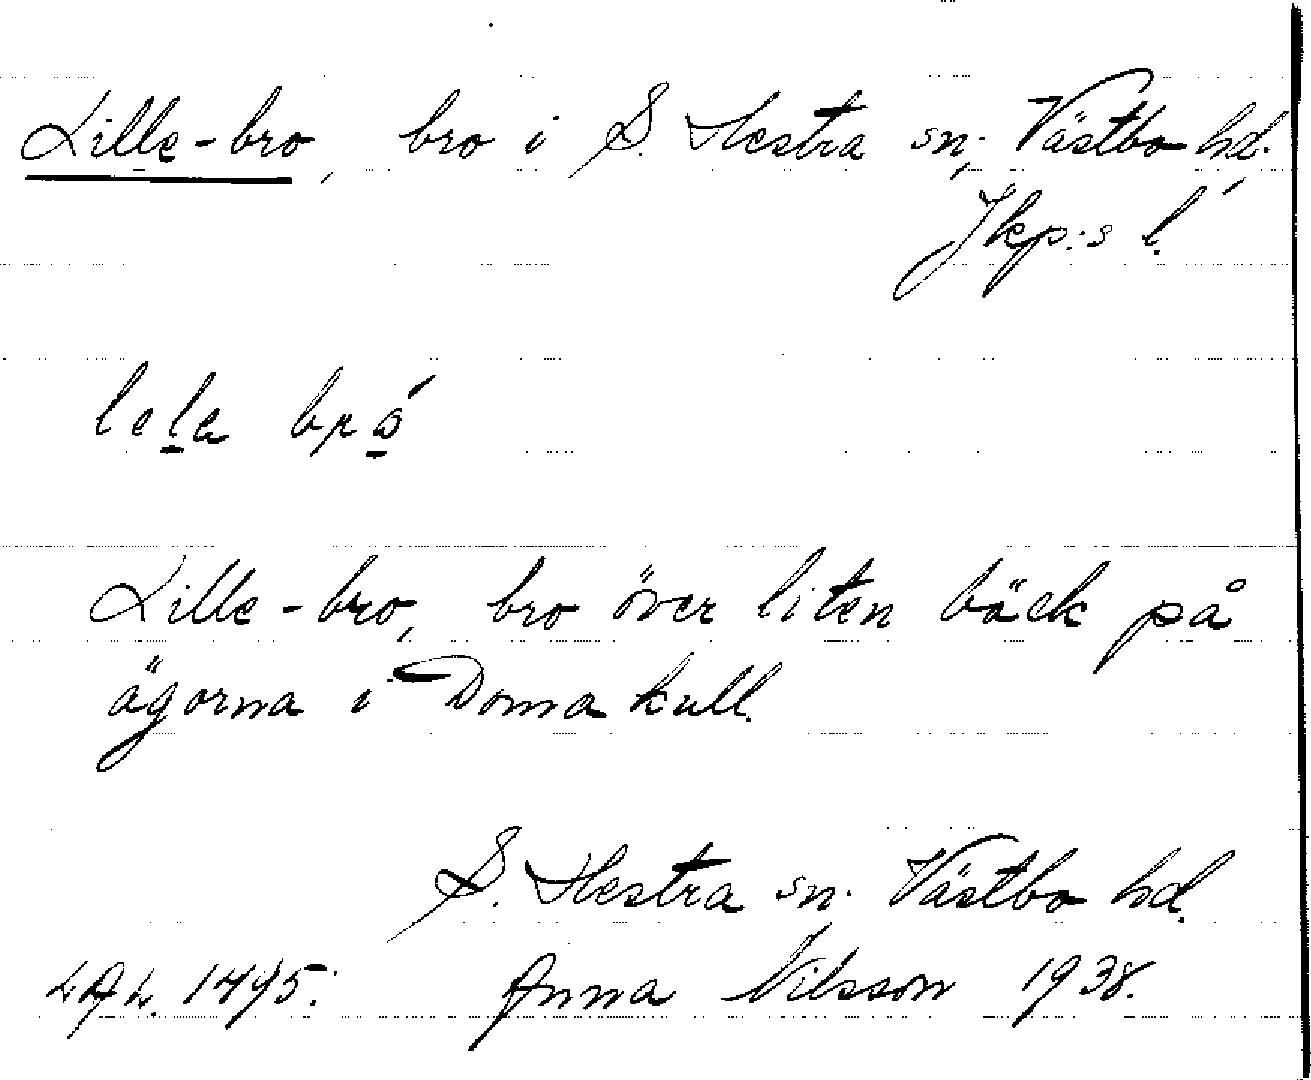 Lille-bro, bro i S. Hestra sn, Västbo hd.
Jkp:s l.
lela bró
Lille-bro, bro över liten bäck på
ägorna i Domakull.
S. Hestra sn. Västbo hd.
LAL. 1495. Anna Nilsson 1938.